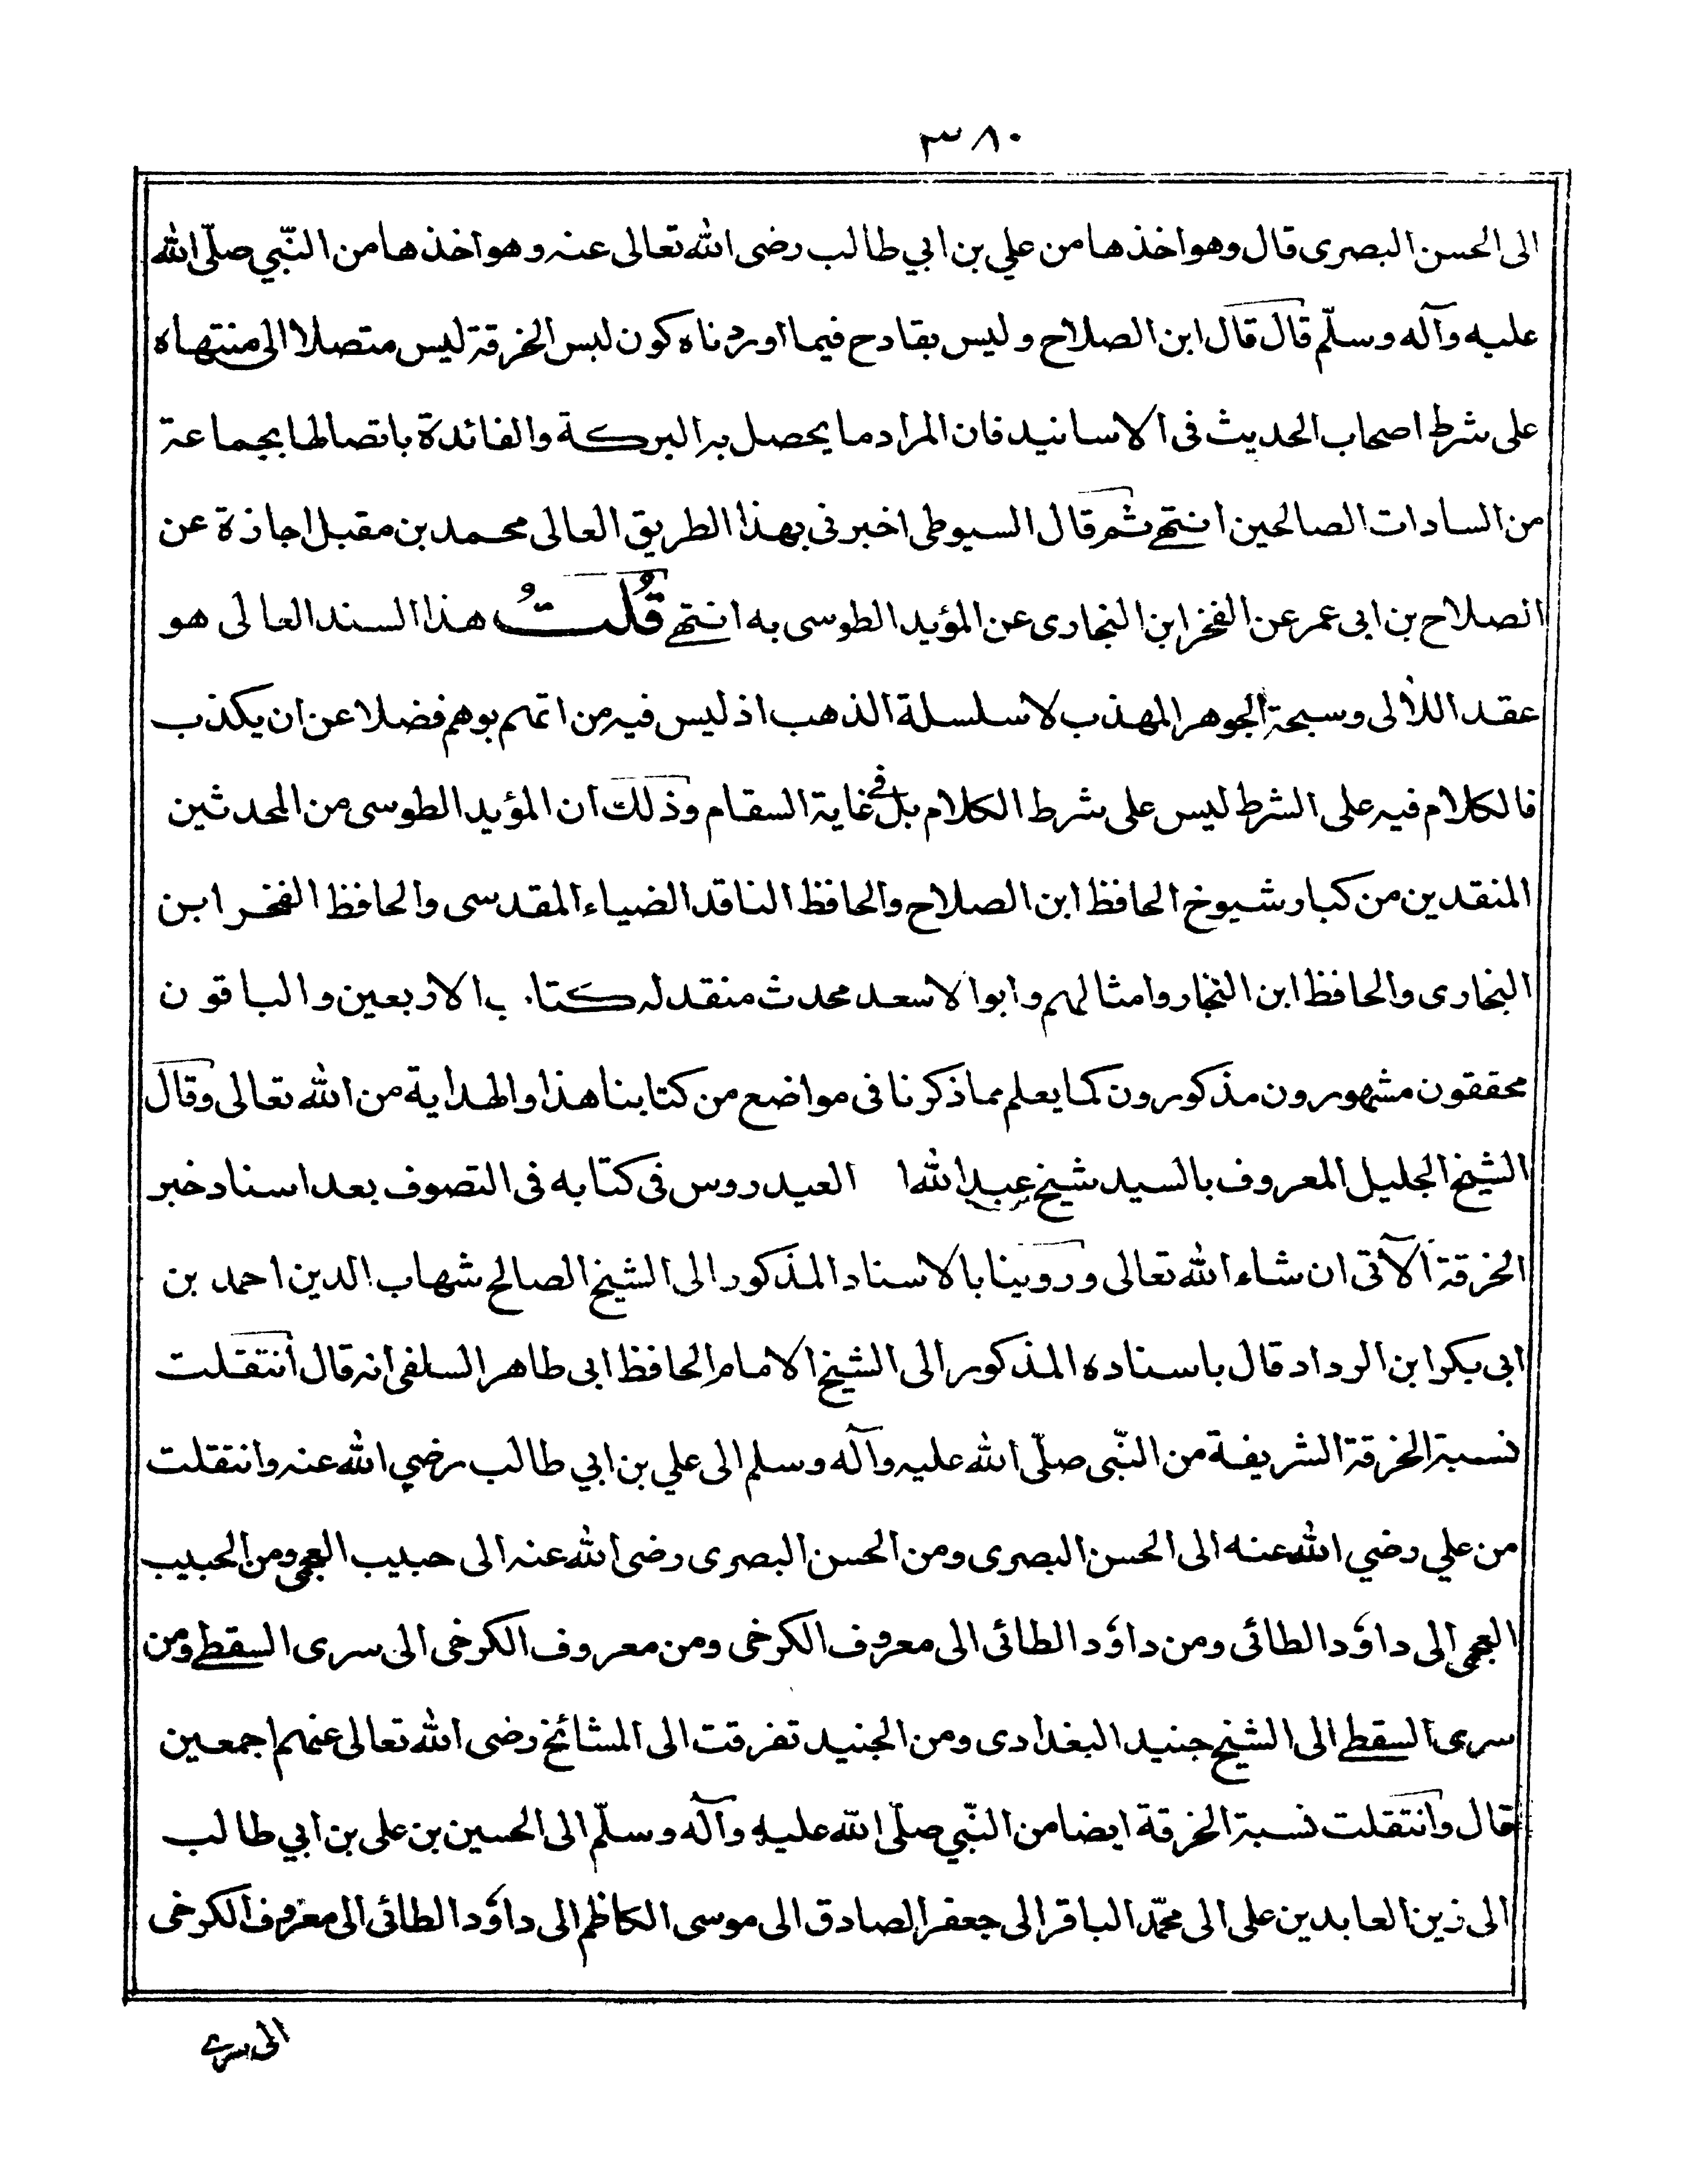 ٣٨٠
الى الحسن البصرى قال وهو اخذها من علي بن ابي طالب رضى الله تعالى عنه وهو اخذها من النّبي صلّى الله
عليه وآله وسلّم قال قال ابن الصلاح وليس بقادح فيما اوردناه كون لبس الخرقة ليس متصلا الى منتهاه
على شرط اصحاب الحديث فى الاسانيد فان المراد ما يحصل به البركة والفائدة باتصالها بجماعة
من السادات الصالحين انتهى ثم قال السيوطى اخبرنى بهذا الطريق العالى محمد بن مقبل اجازة عن
الصلاح بن ابى عمر عن الفخر ابن البخارى عن المؤيد الطوسى به انتهى قُلتُ هذا السند العالى هو
عقد اللآلى وسبحة الجوهر المهذب لا سلسلة الذهب اذ ليس فيه من اتهم بوهم فضلا عن ان يكذب
فالكلام فيه على الشرط ليس على شرط الكلام بل فى غاية السقام وذلك ان المؤيد الطوسى من المحدثين
المنقدين من كبار شيوخ الحافظ ابن الصلاح والحافظ الناقد الضياء المقدسى والحافظ الفخر ابن
البخارى والحافظ ابن النجار وامثالهم وابو الاسعد محدث منقد له كتاب الاربعين والباقون
محققون مشهورون مذكورون كما يعلم مما ذكرنا فى مواضع من كتابنا هذا والهداية من الله تعالى وقال
الشيخ الجليل المعروف بالسيد شيخ عبد الله العيدروس فى كتابه فى التصوف بعد اسناد خبر
الخرقة الآتى ان شاء الله تعالى وروينا بالاسناد المذكور الى الشيخ الصالح شهاب الدين احمد بن
ابى بكر ابن الرداد قال باسناده المذكور الى الشيخ الامام الحافظ ابى طاهر السلفى انه قال انتقلت
نسبة الخرقة الشريفة من النّبى صلّى الله عليه وآله وسلم الى علي بن ابي طالب رضي الله عنه وانتقلت
من علي رضي الله عنه الى الحسن البصرى ومن الحسن البصرى رضى الله عنه الى حبيب العجمى ومن الحبيب
العجمى الى داؤد الطائى ومن داؤد الطائى الى معروف الكرخى ومن معروف الكرخى الى سرى السقطى ومن
سرى السقطى الى الشيخ جنيد البغدادى ومن الجنيد تفرقت الى المشائخ رضى الله تعالى عنهم اجمعين
قال وانتقلت نسبة الخرقة ايضا من النّبي صلّى الله عليه وآله وسلّم الى الحسين بن على بن ابي طالب
الى زين العابدين على الى محمّد الباقر الى جعفر الصادق الى موسى الكاظم الى داؤد الطائى الى معروف الكرخى
الى سرى